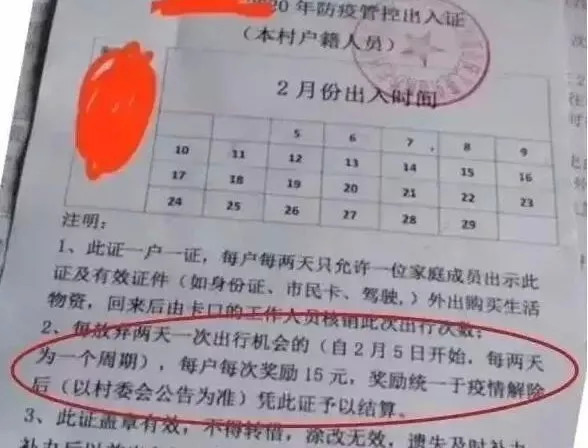 20年防疫管控出入证
（本村户籍人员）
2月份出入时间
5 6 7 8 9
10 11 12 13 14 15 16
17 18 19 20 21 22 23
24 25 26 27 28 29
注明：
1、此证一户一证，每户每两天只允许一位家庭成员出示此
证及有效证件（如身份证、市民卡、驾驶,）外出购买生活
物资，回来后由卡口的工作人员核销此次出行次数；
2、每放弃两天一次出行机会的（自2月5日开始，每两天
为一个周期），每户每次奖励15元，奖励统一于疫情解除
后（以村委会公告为准）凭此证予以结算。
3、此证盖章有效，不得转借，涂改无效，遗失及时补办，